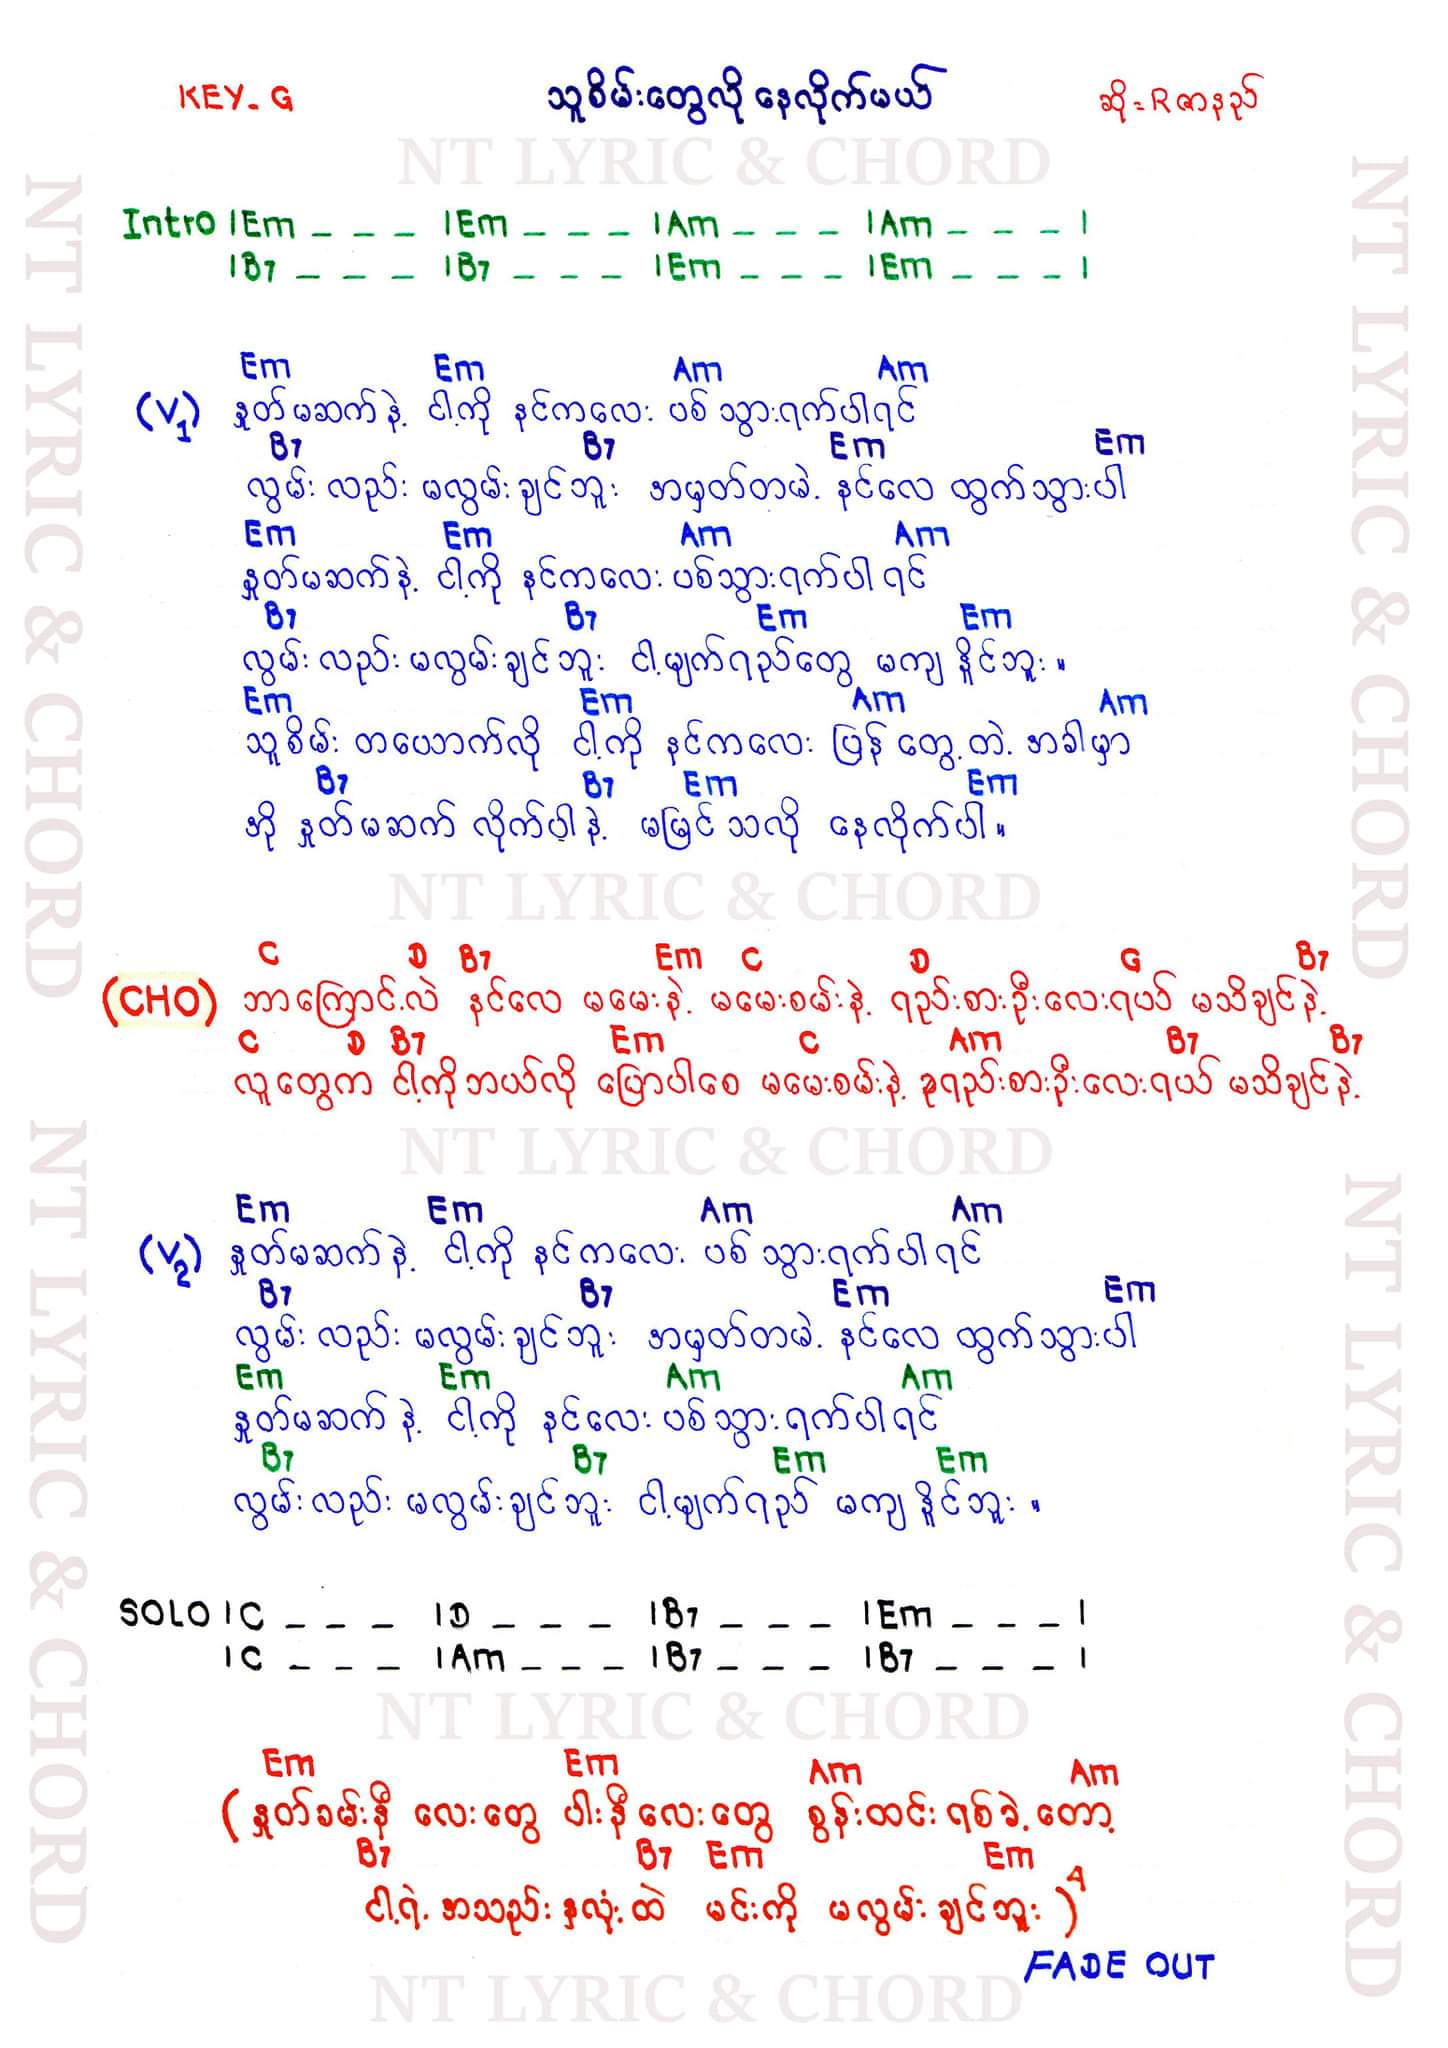 KEY - G သူစိမ်းတွေလို နေလိုက်မယ် ဆို = R ဇာနည်
NT LYRIC & CHORD
Intro | Em _ _ _ | Em _ _ _ | Am _ _ _ | Am _ _ _ |
| B7 _ _ _ | B7 _ _ _ | Em _ _ _ | Em _ _ _ |
Em Em Am Am
(V1) နှုတ်မဆက်နဲ့ ငါ့ကို နင်ကလေး ပစ်သွားရက်ပါရင်
B7 B7 Em Em
လွမ်းလည်း မလွမ်းချင်ဘူး အမှတ်တမဲ့ နင်လေ ထွက်သွားပါ
Em Em Am Am
နှုတ်မဆက်နဲ့ ငါ့ကို နင်ကလေး ပစ်သွားရက်ပါရင်
B7 B7 Em Em
လွမ်းလည်း မလွမ်းချင်ဘူး ငါ့မျက်ရည်တွေ မကျနိူင်ဘူး ။
Em Em Am Am
သူစိမ်း တယောက်လို ငါ့ကို နင်ကလေး ပြန်တွေ့တဲ့ အခါမှာ
B7 B7 Em Em
အို နှုတ်မဆက် လိုက်ပါနဲ့ မမြင်သလို နေလိုက်ပါ ။
NT LYRIC & CHORD
C D B7 Em C D G B7
(CHO) ဘာကြောင့်လဲ နင်လေ မမေးနဲ့ မမေးစမ်းနဲ့ ရည်းစားဦးလေးရယ် မသိချင်နဲ့
C D B7 Em C Am B7 B7
လူတွေက ငါ့ကိုဘယ်လို ပြောပါစေ မမေးစမ်းနဲ့ ခုရည်းစားဦးလေးရယ် မသိချင်နဲ့
NT LYRIC & CHORD
Em Em Am Am
(V2) နှုတ်မဆက်နဲ့ ငါ့ကို နင်ကလေး ပစ်သွားရက်ပါရင်
B7 B7 Em Em
လွမ်းလည်း မလွမ်းချင်ဘူး အမှတ်တမဲ့ နင်လေ ထွက်သွားပါ
Em Em Am Am
နှုတ်မဆက်နဲ့ ငါ့ကို နင်လေး ပစ်သွားရက်ပါရင်
B7 B7 Em Em
လွမ်းလည်း မလွမ်းချင်ဘူး ငါ့မျက်ရည် မကျနိူင်ဘူး ။
SOLO | C _ _ _ | D _ _ _ | B7 _ _ _ | Em _ _ _ |
| C _ _ _ | Am _ _ _ | B7 _ _ _ | B7 _ _ _ |
NT LYRIC & CHORD
Em Em Am Am
( နှုတ်ခမ်းနီ လေးတွေ ပါးနီလေးတွေ စွန်းထင်းရစ်ခဲ့တော့
B7 B7 Em Em
ငါ့ရဲ့ အသည်းနှလုံးထဲ မင်းကို မလွမ်းချင်ဘူး )4
FADE OUT
NT LYRIC & CHORD
NT LYRIC & CHORD
NT LYRIC & CHORD
NT LYRIC & CHORD
NT LYRIC & CHORD